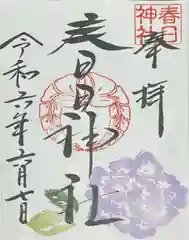 奉拝
春日
神社
春日神社
令和六年二月七日